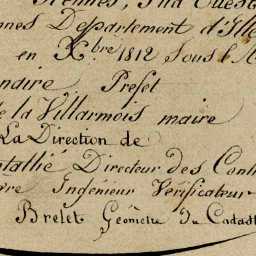 Rennes, Sud Ouest
nnes Departement d'Ille
en X.bre 1812 Sous l'A
naire, Prefet
e la Villarmois maire
La Direction de
tallié Directeur des Cont
re Ingénieur Vérificateur
Brelet Géometre du Cadast